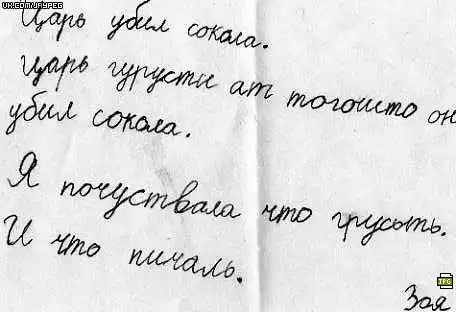 VK.COM/FLYPEG
Царь убил сокола.
Царь гурусти ат тогошто он
убил сокола.
Я почуствала что грусыть.
И что пичаль.
Зоя
TPG